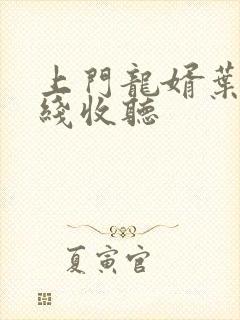 上門龍婿葉
綫收聽
夏寅官